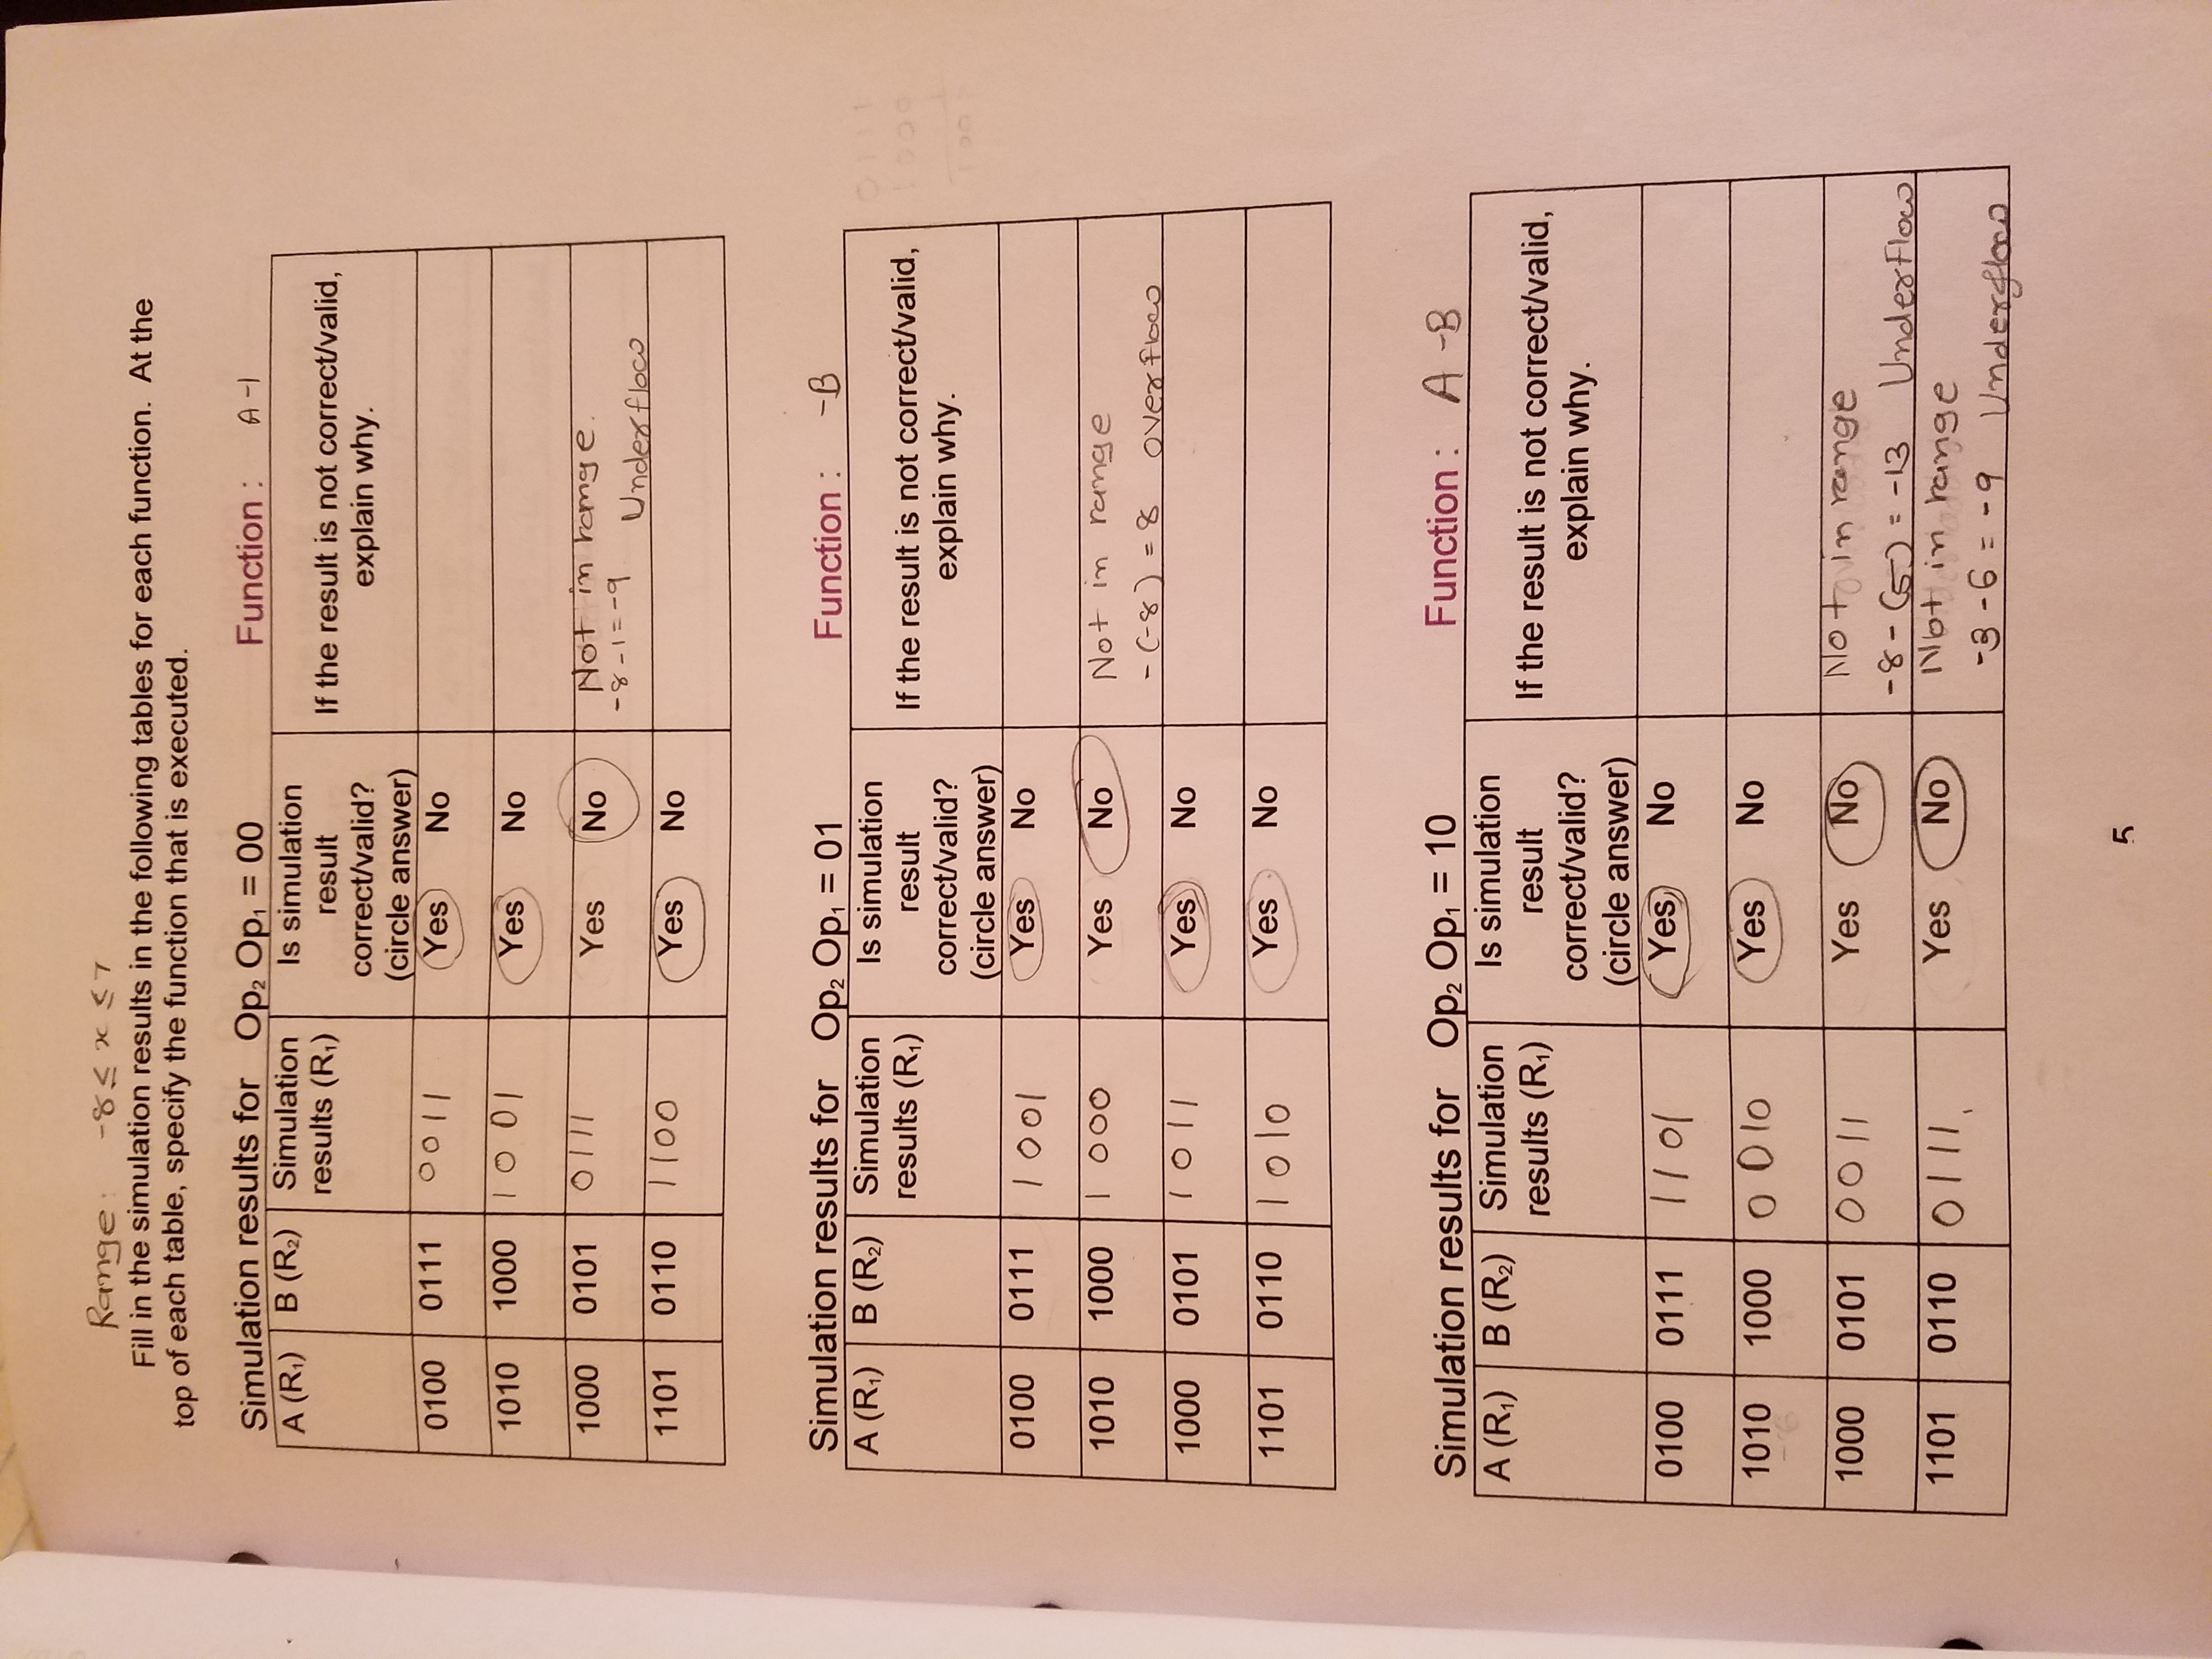 Range: -8 ≤ x ≤ 7
Fill in the simulation results in the following tables for each function. At the
top of each table, specify the function that is executed.
Simulation results for Op₂ Op₁ = 00 Function : A-1
A (R₁) B (R₂) Simulation results (R₁) Is simulation result correct/valid? (circle answer) If the result is not correct/valid, explain why.
0100 0111 0011 Yes No
1010 1000 1001 Yes No
1000 0101 0111 Yes No Not in range.
-8-1=-9 Underflow
1101 0110 1100 Yes No
Simulation results for Op₂ Op₁ = 01 Function : -B
A (R₁) B (R₂) Simulation results (R₁) Is simulation result correct/valid? (circle answer) If the result is not correct/valid, explain why.
0100 0111 1001 Yes No
1010 1000 1000 Yes No Not in range
-(-8) = 8 overflow
1000 0101 1011 Yes No
1101 0110 1010 Yes No
Simulation results for Op₂ Op₁ = 10 Function : A-B
A (R₁) B (R₂) Simulation results (R₁) Is simulation result correct/valid? (circle answer) If the result is not correct/valid, explain why.
0100 0111 1101 Yes No
1010 1000 0010 Yes No
1000 0101 0011 Yes No Not in range
-8-(5) = -13 UnderFlow
1101 0110 0111 Yes No Not in range
-3-6 = -9 Underflow
5